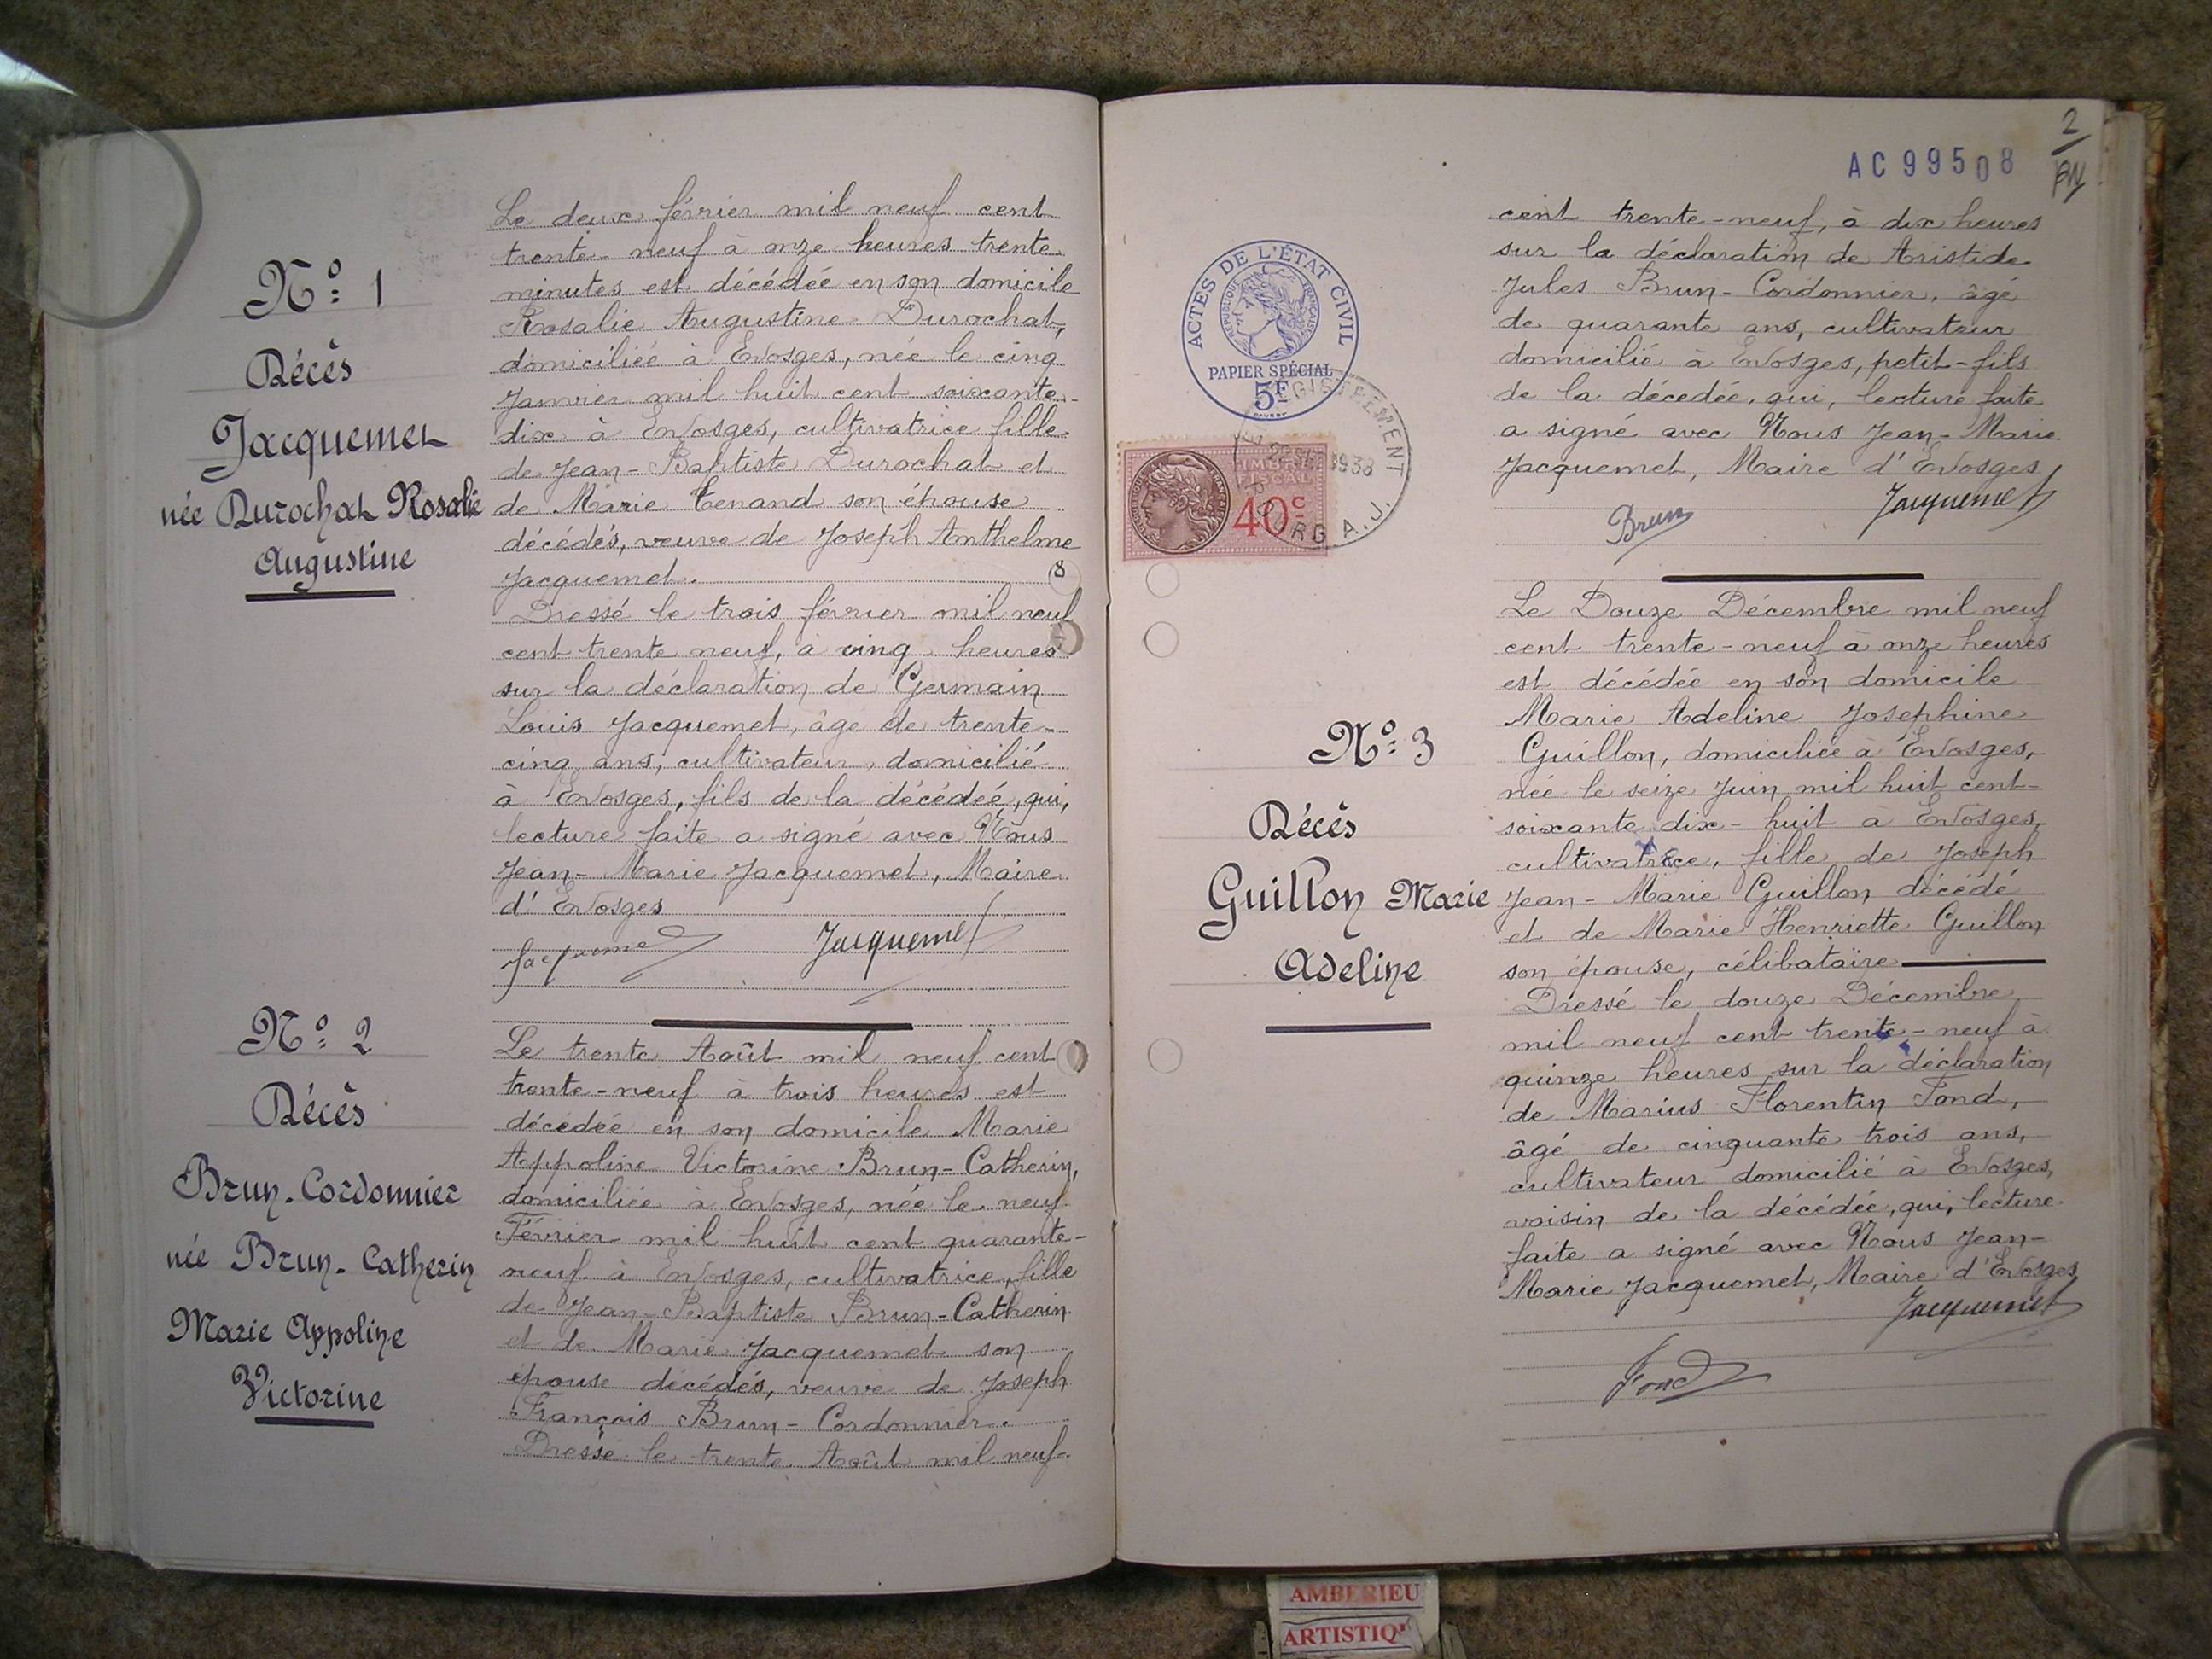 Nº 1
Décès
Jacquemet
née Durochat Rosalie
Augustine
Le deux février mil neuf cent
trente-neuf à onze heures trente
minutes est décédée en son domicile
Rosalie Augustine Durochat,
domiciliée à Evosges, née le cinq
Janvier mil huit cent soixante-
dix à Evosges, cultivatrice fille
de Jean-Baptiste Durochat et
de Marie Tenand son épouse
décédés, veuve de Joseph Anthelme
Jacquemet.
8
Dressé le trois février mil neuf
cent trente neuf, à cinq heures
sur la déclaration de Germain
Louis Jacquemet, âgé de trente-
cinq ans, cultivateur, domicilié
à Evosges, fils de la décédée, qui,
lecture faite a signé avec Nous
Jean-Marie Jacquemet, Maire
d'Evosges
Jacquemet Jacquemet
Nº 2
Décès
Brun-Cordonnier
née Brun-Catherin
Marie Appoline
Victorine
Le trente Août mil neuf cent
trente-neuf à trois heures est
décédée en son domicile Marie
Appoline Victorine Brun-Catherin,
domiciliée à Evosges, née le neuf
Février mil huit cent quarante-
neuf à Evosges, cultivatrice, fille
de Jean-Baptiste Brun-Catherin
et de Marie Jacquemet son
épouse décédés, veuve de Joseph
François Brun-Cordonnier.
Dressé le trente Août mil neuf
2
AC 99508
cent trente-neuf, à dix heures
sur la déclaration de Aristide
Jules Brun-Cordonnier, âgé
de quarante ans, cultivateur
domicilié à Evosges, petit-fils
de la décedée, qui, lecture faite
a signé avec Nous Jean-Marie
Jacquemet, Maire d'Evosges
Brun Jacquemet
ACTES DE L'ÉTAT CIVIL
RÉPUBLIQUE FRANÇAISE
PAPIER SPÉCIAL
5F
TIMBRE
FISCAL
40c
1938
BOURG A.J.
Nº 3
Décès
Guillon Marie
Adeline
Le Douze Décembre mil neuf
cent trente-neuf à onze heures
est décédée en son domicile
Marie Adeline Josephine
Guillon, domiciliée à Evosges,
née le seize Juin mil huit cent-
soixante dix-huit à Evosges,
cultivatrice, fille de Joseph
Jean-Marie Guillon décédé
et de Marie Henriette Guillon
son épouse, célibataire
Dressé le douze Décembre
mil neuf cent trente-neuf à
quinze heures sur la déclaration
de Marius Florentin Fond,
âgé de cinquante trois ans,
cultivateur domicilié à Evosges,
voisin de la décédée, qui, lecture
faite a signé avec Nous Jean-
Marie Jacquemet, Maire d'Evosges
Jacquemet
Fond
AMBERIEU
ARTISTIQ